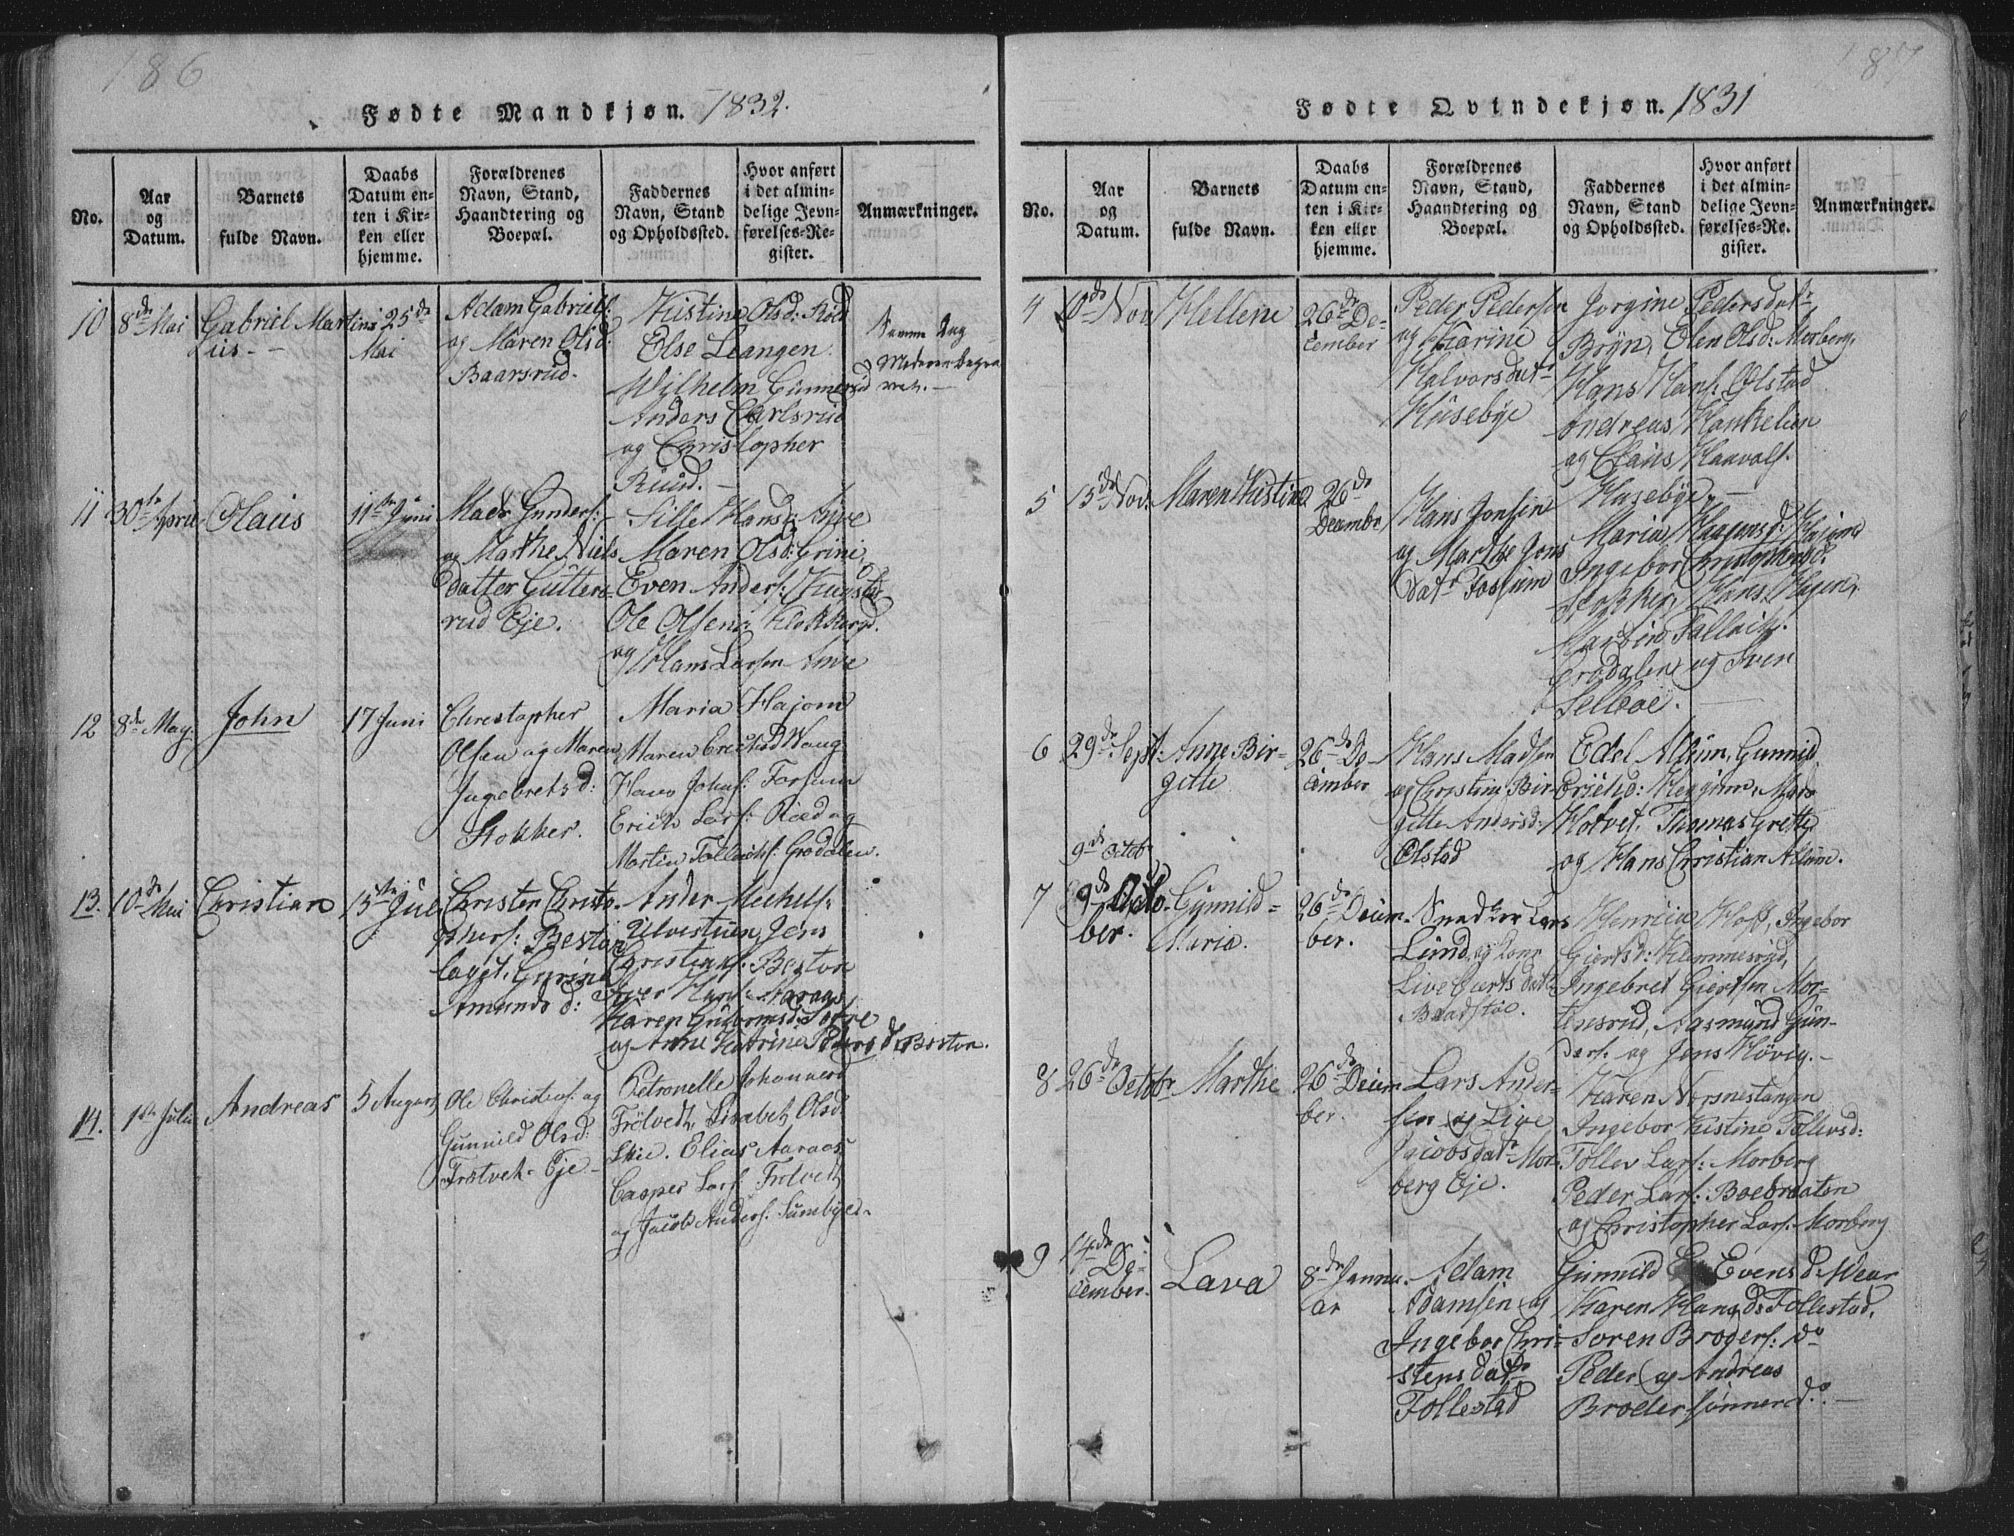 186
Fødte Mandkjøn. 1832.
No.
Aar
og
Datum.
Barnets
fulde Navn.
Daabs
Datum en-
ten i Kir-
ken eller
hjemme.
Forældrenes
Navn, Stand,
Haandtering og
Boepæl.
Faddernes
Navn, Stand
og Opholdssted.
Hvor anført
i det almin-
delige Jevn-
førelses-Re-
gister.
Anmærkninger.
10
8de Mai
Gabriel Martini
us
25de
Mai
Adam Gabriels:
og Maren Olsd:
Baarsrud.
Kistine Olsd: Röd
Else Leangen
Wilhelm Gunnerud
Anders Carlsrud
og Christopher
Ruud.
Samme Dag
11
30te April
Olaus
11te Juni
Mads Gunders:
og Marthe Niels
datter Gutters-
rud Eje.
Sille Hansd:
Maren Olsd: Grini,
Even Anders:
Ole Olsen
og Hans Larsen
12
8de May
John
17 Juni
Christopher
Olsen og Maren
Ingebretsd:
Stokker.
Maria Hajom
Maren Ericksd Waug
Hans Johns: Forsum
Erich Lars: Röed og
Martin Tollachs: Grodalen.
13.
10de Mai
Christian
15de Jul
Christen Christo-
phers: Beston
laget, Gurine
Amunds d:
Ander Mechels:
Ulvestuen, Jens
Christians: Beston
Iver Hans: Aaraas
Karen Guttormsd:
og Anne Katrine Peders d. Beston.
14.
1ste Julii
Andreas
5 August
Ole Christens: og
Gunnild Olsd:
Frötvek Eje
Petronelle Johannesd
Frölvedt, Lisabet Olsd.
Skie. Elias Aaraas
Casper Lars: Frölvedt
og Jacob Anders: Sumbye
187
Fødte Qvindekjøn. 1831
No.
Aar
og
Datum.
Barnets
fulde Navn.
Daabs
Datum en-
ten i Kir-
ken eller
hjemme.
Forældrenes
Navn, Stand,
Haandtering og
Boepæl.
Faddernes
Navn, Stand
og Opholdssted.
Hvor anført
i det almin-
delige Jevn-
førelses-Re-
gister.
Anmærkninger.
4
10de Nov
Hellene
26de De-
cember
Peder Pedersen
og Karine
Halvorsdatr
Husebye
Jorgine Pedersdatr
Bryn, Elen Olsd: Morberg,
Hans Hans: Olstad
Andreas Hankelien
og Claus Haavols:
Husebye
5
15de Nov.
Maren Kistine
26de
Decembr
Hans Jonsen
og Marthe Jons
datr Fossum
Maria Haagensd: Hajum
Ingebor Christophersd:
Stokker, Hans Hagen,
Martin Tollachs:
Grodalen og Sven
Selboe.
6
29de Sept:
Anne Bir-
gitte
26de De-
cember
Hans Madsen
og Christine Bir-
gitte Andersd:
Olstad
Edel Alsum, Gunnild
Ericksd: Heggum, Mads
Hotvet, Thomas Grette
og Hans Christian Alsum.
9de Octob
7
9de Octo-
ber.
Gunnild
Maria.
26de Decem-
ber.
Snedker Lars
Lund, og Kone
Live Larsdatr
Baadstöe.
Henrica Hoff, Ingebor
Giertsd: Klemmesrud,
Ingebret Giertsen Mor-
tensrud, Aasmund Gun-
ders: og Jens Hövig.
8
26de Octobr
Marthe
26de Decem-
ber.
Lars Ander-
sen og Live
Jacobsdatr Mor-
berg Eje.
Karen Nersnestangen
Ingebor Kistine Tollevsd:
Tollev Lars: Morberg
Peder Lars: Boebraaten
og Christopher Lars: Morberg
9
14de De-
cember.
Lava
8de Janu-
ar
Adam
Adamsen og
Ingebor Chri-
stensdatr
Follestad
Gunnild Evensd:
Karen Hansd: Follestad,
Soren Broders: do
Peder og Andreas
Brodersønner do.